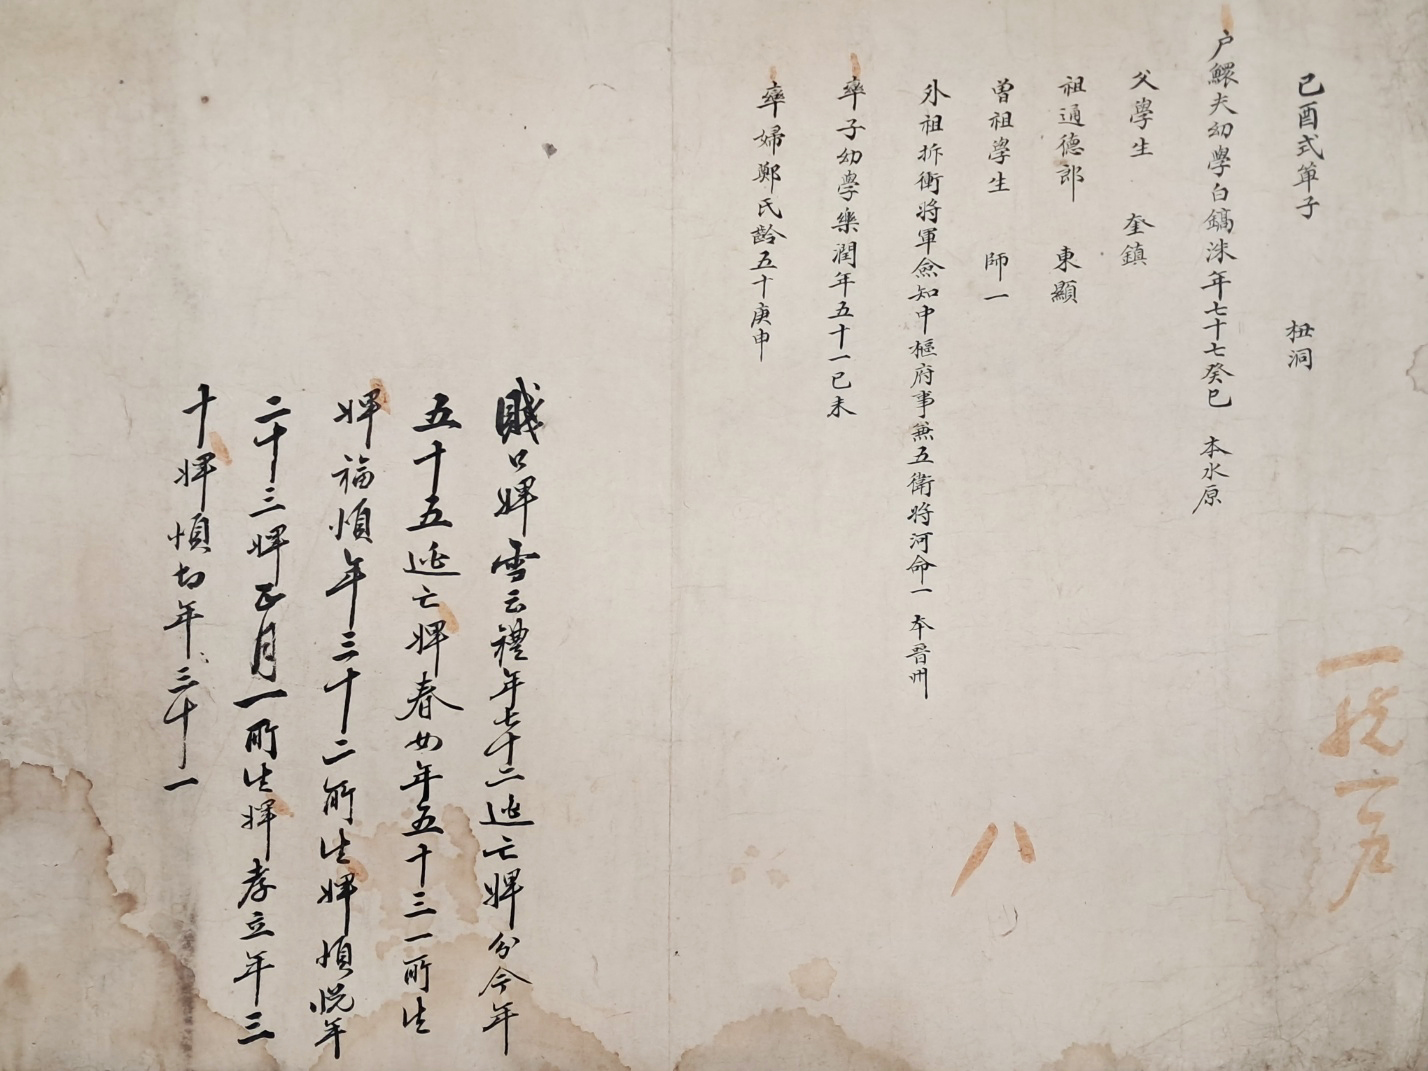 己酉式單子 杻洞
戶鰥夫幼學白鎬洙年七十七癸巳 本水原
父學生 奎鎮
祖通德郎 東顯
曾祖學生 師一
外祖折衝將軍僉知中樞府事兼五衛將河命一 本晉州
率子幼學樂潤年五十一己未
率婦鄭氏齡五十庚申
賤口婢雪云禮年七十二逃亡婢分今年
五十五逃亡婢春女年五十三一所生
婢福順年三十二所生婢順悅年
二十三婢正月一所生婢孝立年三
十婢順切年三十一
一統一戶
八